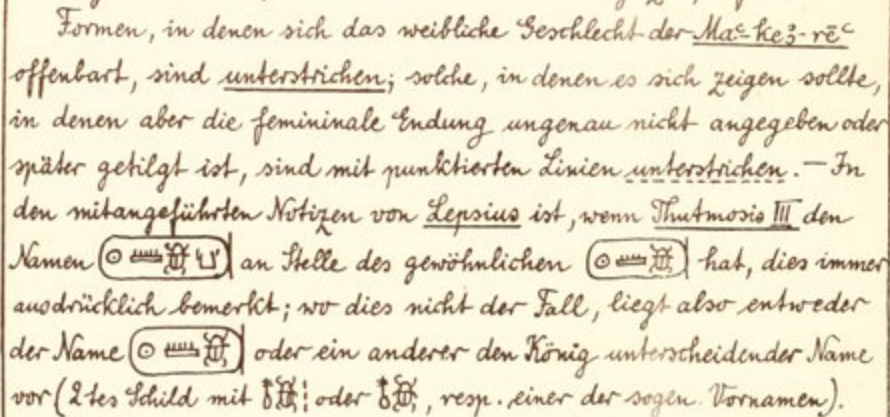 Formen, in denen sich das weibliche Geschlecht der Maꜥ-ke3-rēꜥ
offenbart, sind unterstrichen; solche, in denen es sich zeigen sollte,
in denen aber die femininale Endung ungenau nicht angegeben oder
später getilgt ist, sind mit punktierten Linien unterstrichen. — In
den mitangeführten Notizen von Lepsius ist, wenn Thutmosis III den
Namen 𓍹𓇳𓏠𓆣𓂓𓍺 an Stelle des gewöhnlichen 𓍹𓇳𓏠𓆣𓍺 hat, dies immer
ausdrücklich bemerkt; wo dies nicht der Fall, liegt also entweder
der Name 𓍹𓇳𓏠𓆣𓍺 oder ein anderer den König unterscheidender Name
vor (2tes Schild mit 𓄤𓆣𓏥 oder 𓄤𓆣, resp. einer der sogen. Vornamen).